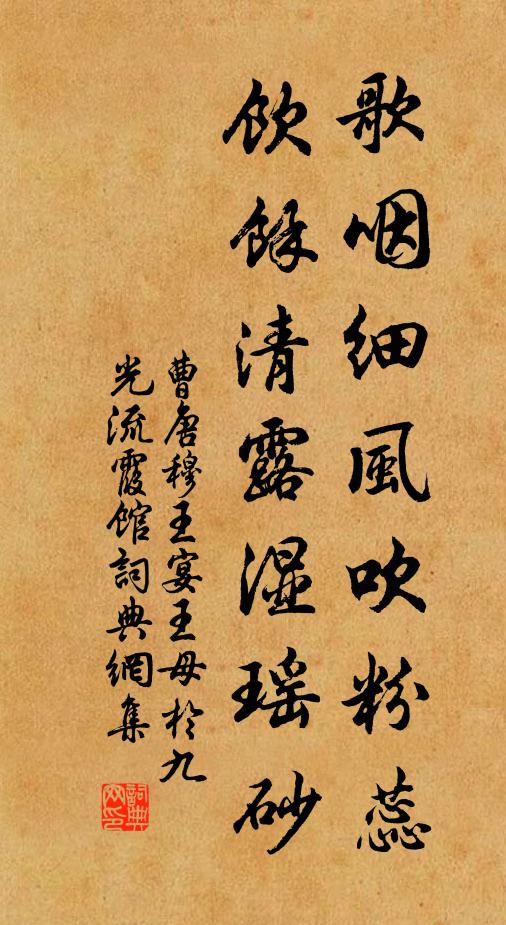 歌咽细風吹粉蕊
飲餘清露濕瑶砂
曹唐穆王宴王母於九
光流霞館詞典網集
詞典
网印